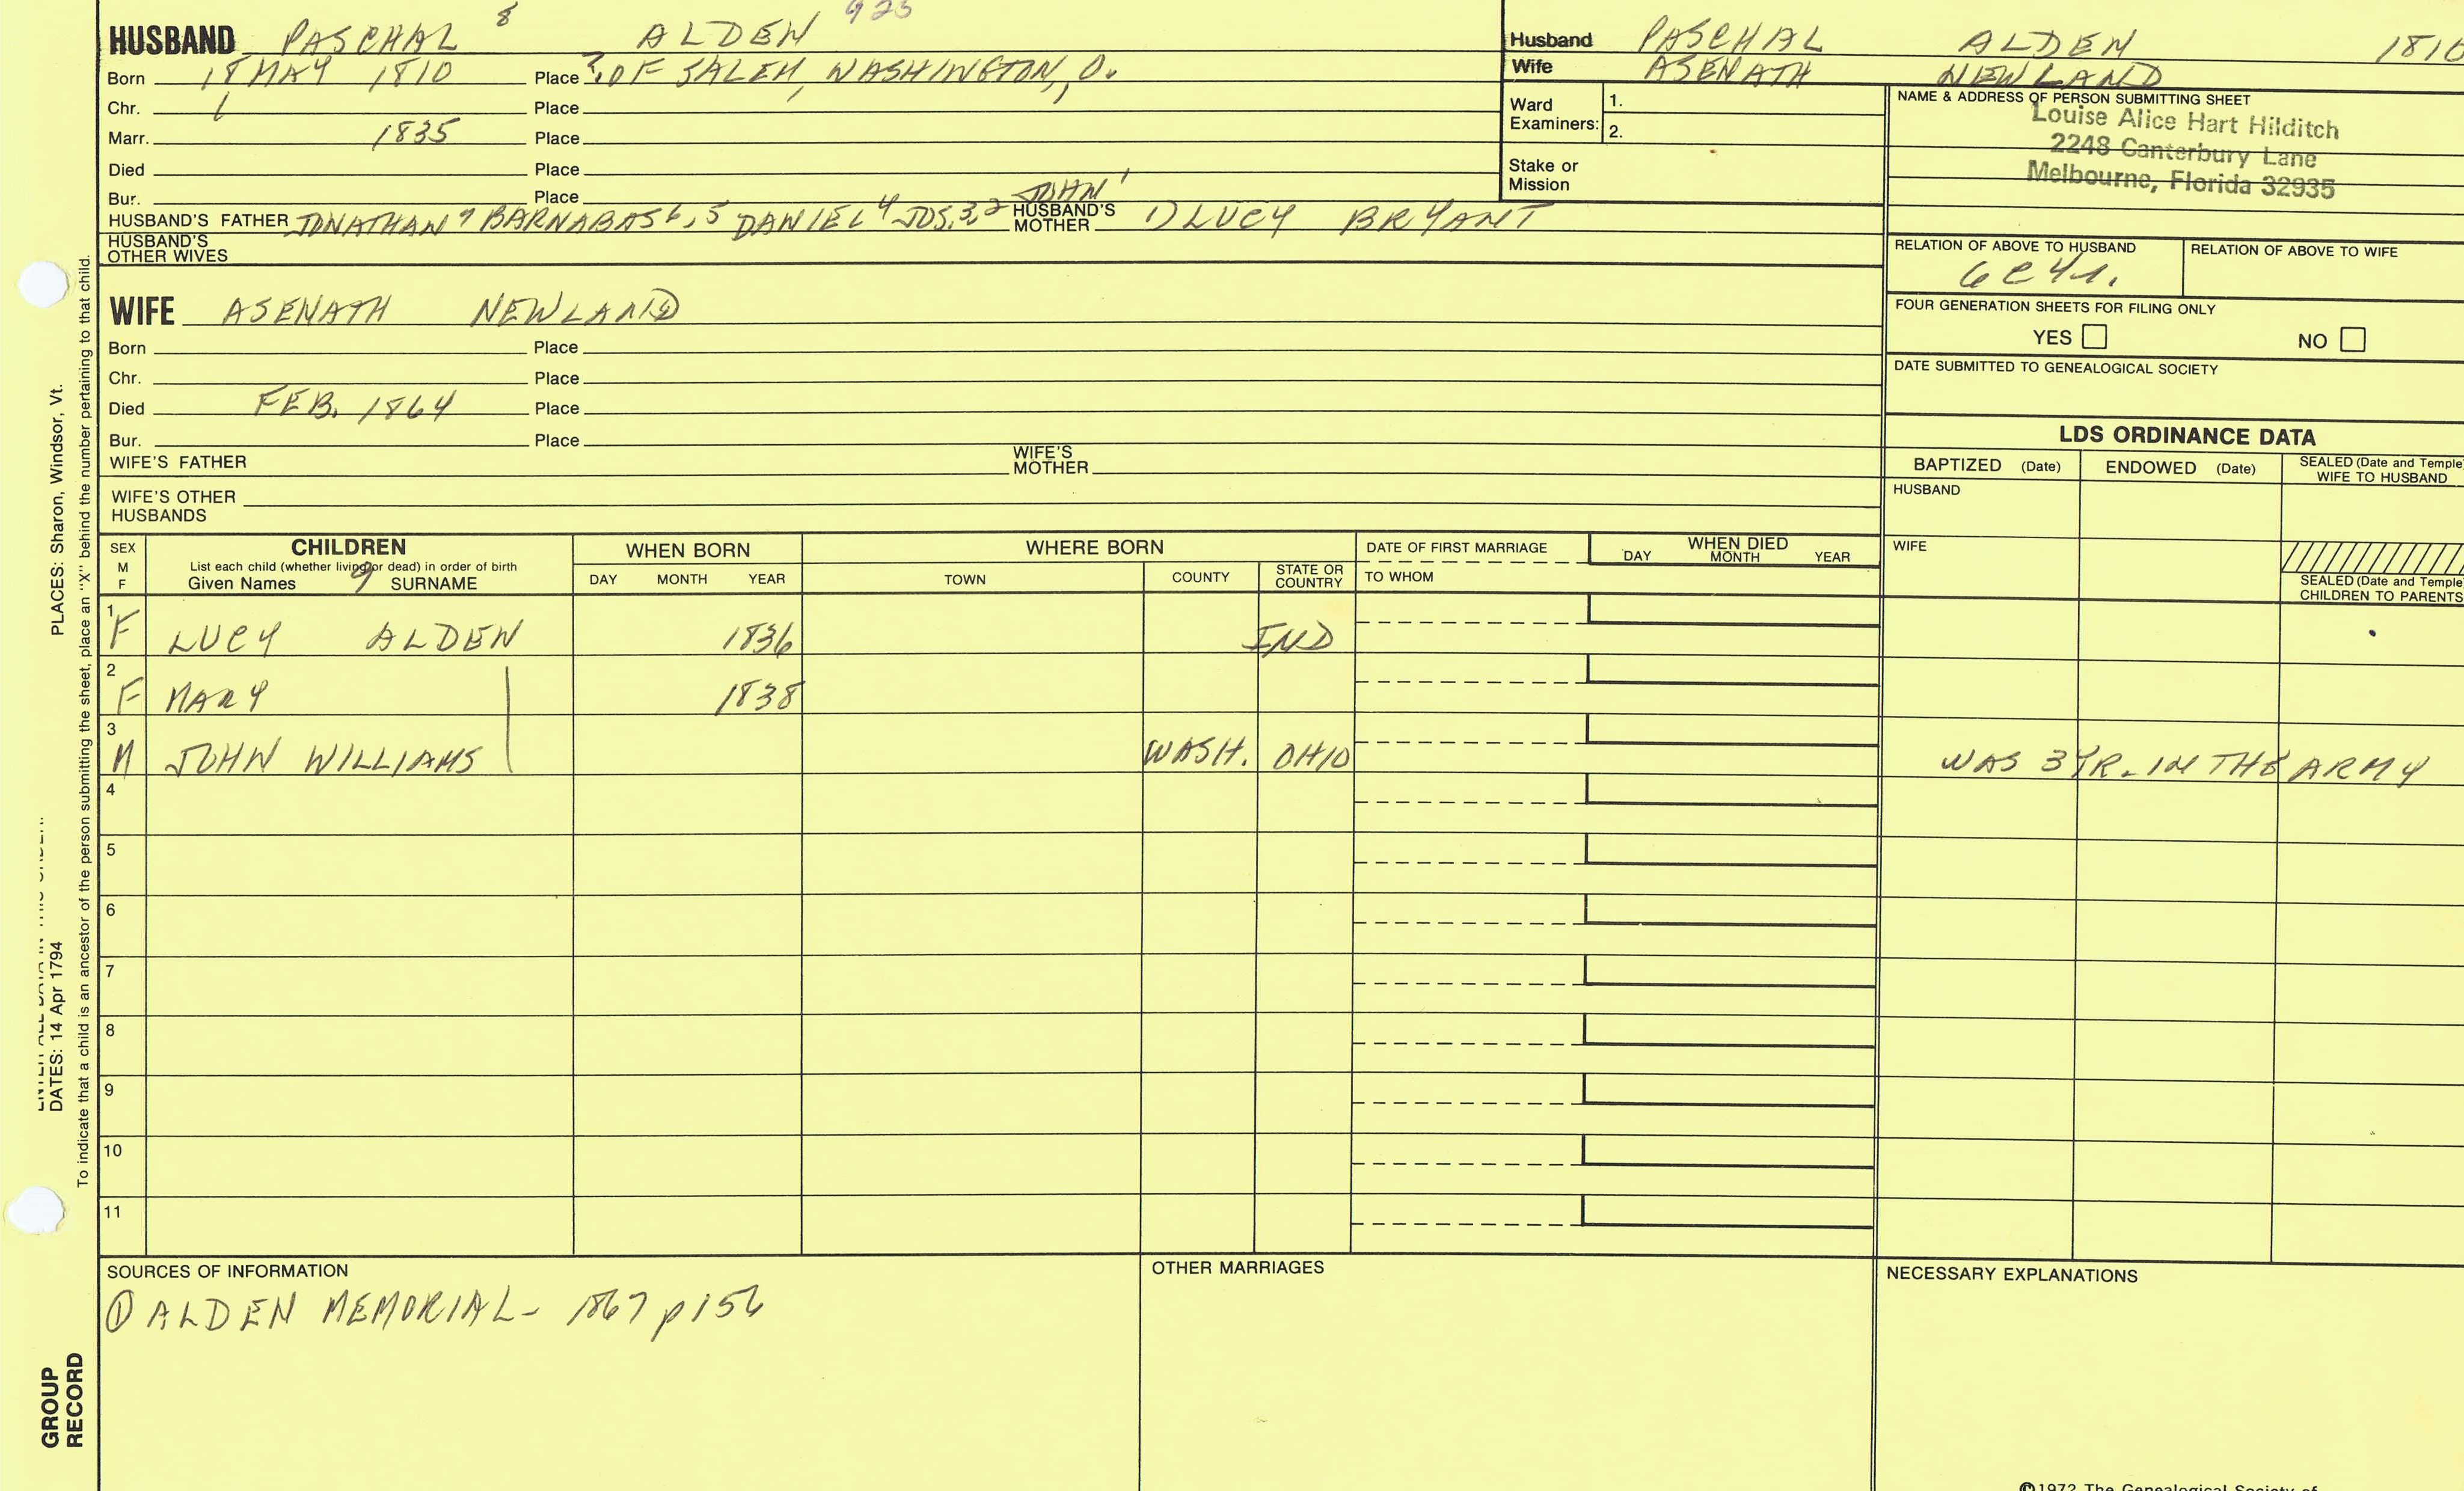 8 923
HUSBAND PASCHAL ALDEN
Born 18 MAY 1810 Place ?, OF SALEM, WASHINGTON, O.
Chr. Place
Marr. 1835 Place
Died Place
Bur. Place JOHN 1
HUSBAND'S FATHER JONATHAN 7 BARNABAS 6, 5 DANIEL 4 JOS. 3, 2 HUSBAND'S MOTHER 1) LUCY BRYANT
HUSBAND'S OTHER WIVES
WIFE ASENATH NEWLAND
Born Place
Chr. Place
Died FEB. 1864 Place
Bur. Place
WIFE'S FATHER WIFE'S MOTHER
WIFE'S OTHER HUSBANDS
Husband PASCHAL ALDEN 1810
Wife ASENATH NEWLAND
Ward Examiners: 1.
2.
Stake or Mission
NAME & ADDRESS OF PERSON SUBMITTING SHEET
Louise Alice Hart Hilditch
2248 Canterbury Lane
Melbourne, Florida 32935
RELATION OF ABOVE TO HUSBAND RELATION OF ABOVE TO WIFE
6C4R.
FOUR GENERATION SHEETS FOR FILING ONLY
YES NO
DATE SUBMITTED TO GENEALOGICAL SOCIETY
LDS ORDINANCE DATA
BAPTIZED (Date) ENDOWED (Date) SEALED (Date and Temple) WIFE TO HUSBAND
HUSBAND
WIFE
SEALED (Date and Temple) CHILDREN TO PARENTS
SEX M F CHILDREN WHEN BORN WHERE BORN DATE OF FIRST MARRIAGE WHEN DIED
List each child (whether living or dead) in order of birth DAY MONTH YEAR
Given Names 9 SURNAME DAY MONTH YEAR TOWN COUNTY STATE OR COUNTRY TO WHOM
1 F LUCY ALDEN 1836 IND
2 F MARY 1838
3 M JOHN WILLIAMS WASH. OHIO WAS 3 YR. IN THE ARMY
4
5
6
7
8
9
10
11
SOURCES OF INFORMATION OTHER MARRIAGES NECESSARY EXPLANATIONS
① ALDEN MEMORIAL - 1867 p 156
PLACES: Sharon, Windsor, Vt.
DATES: 14 Apr 1794
To indicate that a child is an ancestor of the person submitting the sheet, place an "X" behind the number pertaining to that child.
GROUP RECORD
©1972 The Genealogical Society of